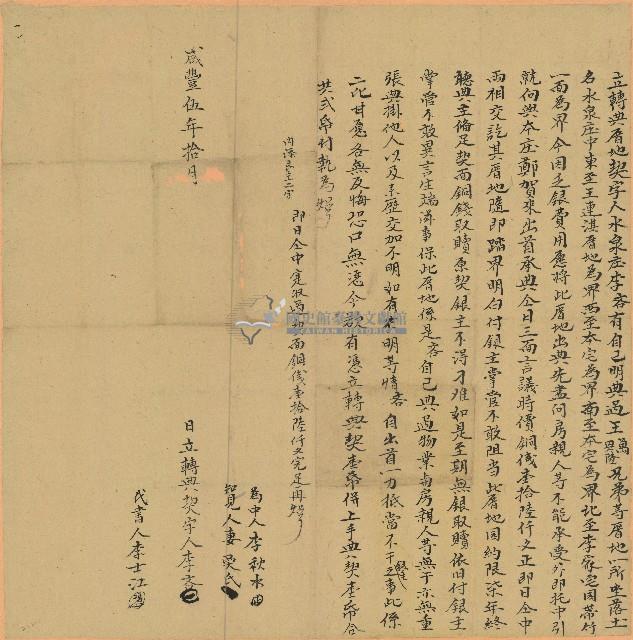 立轉典厝地契字人水泉庄李客有自己明典過王萬興陞兄弟等厝地一所坐落土
名水泉庄中東至王連湛厝地為界西至本宅為界南至本宅為界北至李家宅園帶竹
一面為界今因乏銀費用應將此厝地出典先盡問房親人等不能承受外即托中引
就向與本庄鄭賀來出首承典仝日三面言議時價銅錢壹拾陸仟文正即日仝中
兩相交訖其厝地隨即踏界明白付銀主掌管不敢阻當此厝地因約限柒年終
聽典主備足契面銅錢取贖原契銀主不得刁难如是至期無銀取贖依旧付銀主
掌管不敢異言生端滋事保此厝地係是客自己典過物業與房親人等無干亦無重
張典掛他人以及來歷交加不明如有不明等情客自出首一力抵當不干銀主之事此係
二比甘愿各無反悔恐口無憑今欲有憑立轉典契壹帋併上手典契壹帋合
共弍帋付執為炤
內添主字二字
即日仝中寔收過契面銅錢壹拾陸仟文完足再炤
為中人李秋水
知見人妻吳氏
日立轉典契字人李客
代書人李士江
咸豐伍年拾月
國史館臺灣文獻館
TAIWAN HISTORICA